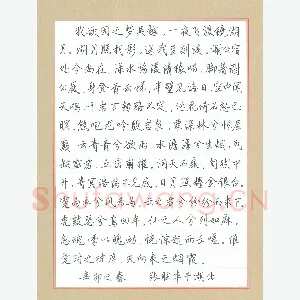 我欲因之梦吴越，一夜飞渡镜湖
月。湖月照我影，送我至剡溪。谢公宿
处今尚在，渌水荡漾清猿啼。脚著谢
公屐，身登青云梯。半壁见海日，空中闻
天鸡。千岩万转路不定，迷花倚石忽已
暝。熊咆龙吟殷岩泉，栗深林兮惊层
巅。云青青兮欲雨，水澹澹兮生烟。列
缺霹雳，丘峦崩摧。洞天石扉，訇然中
开。青冥浩荡不见底，日月照耀金银台。
霓为衣兮风为马，云之君兮纷纷而来下。
虎鼓瑟兮鸾回车，仙之人兮列如麻。
忽魂悸以魄动，恍惊起而长嗟。惟
觉时之枕席，失向来之烟霞。